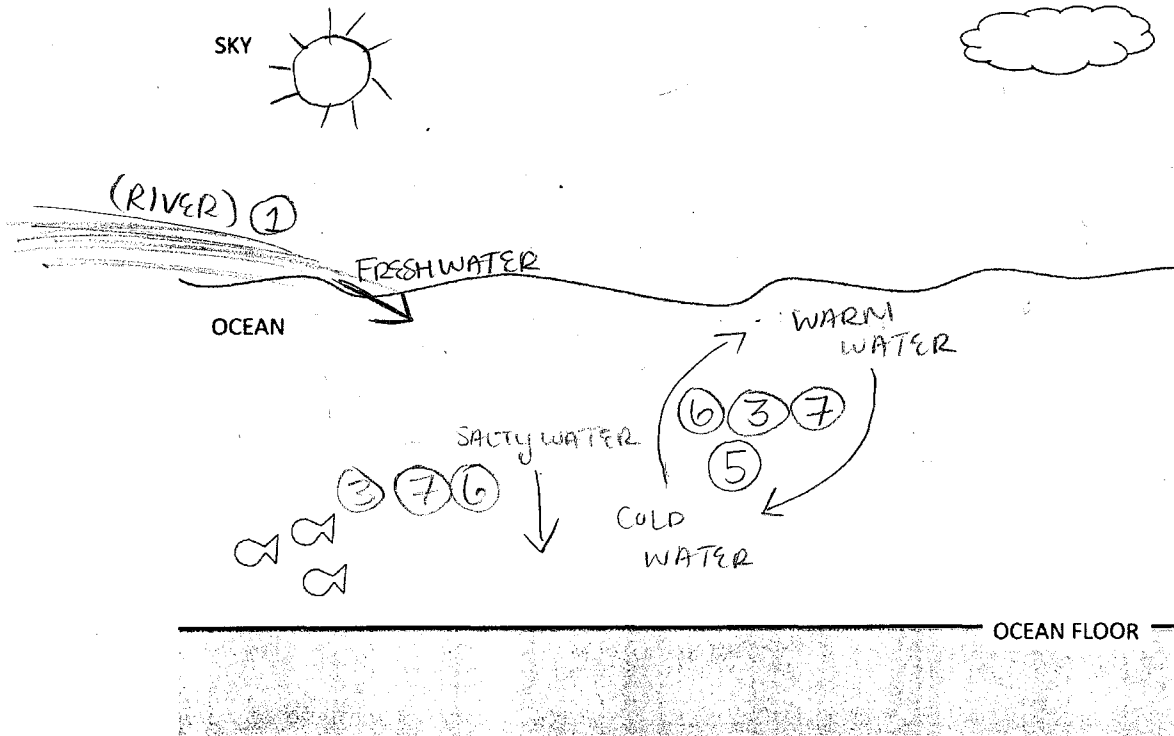 SKY
(RIVER) 1
FRESHWATER
OCEAN
WARM
WATER
6 3 7
5
SALTY WATER
3 7 6
COLD
WATER
OCEAN FLOOR